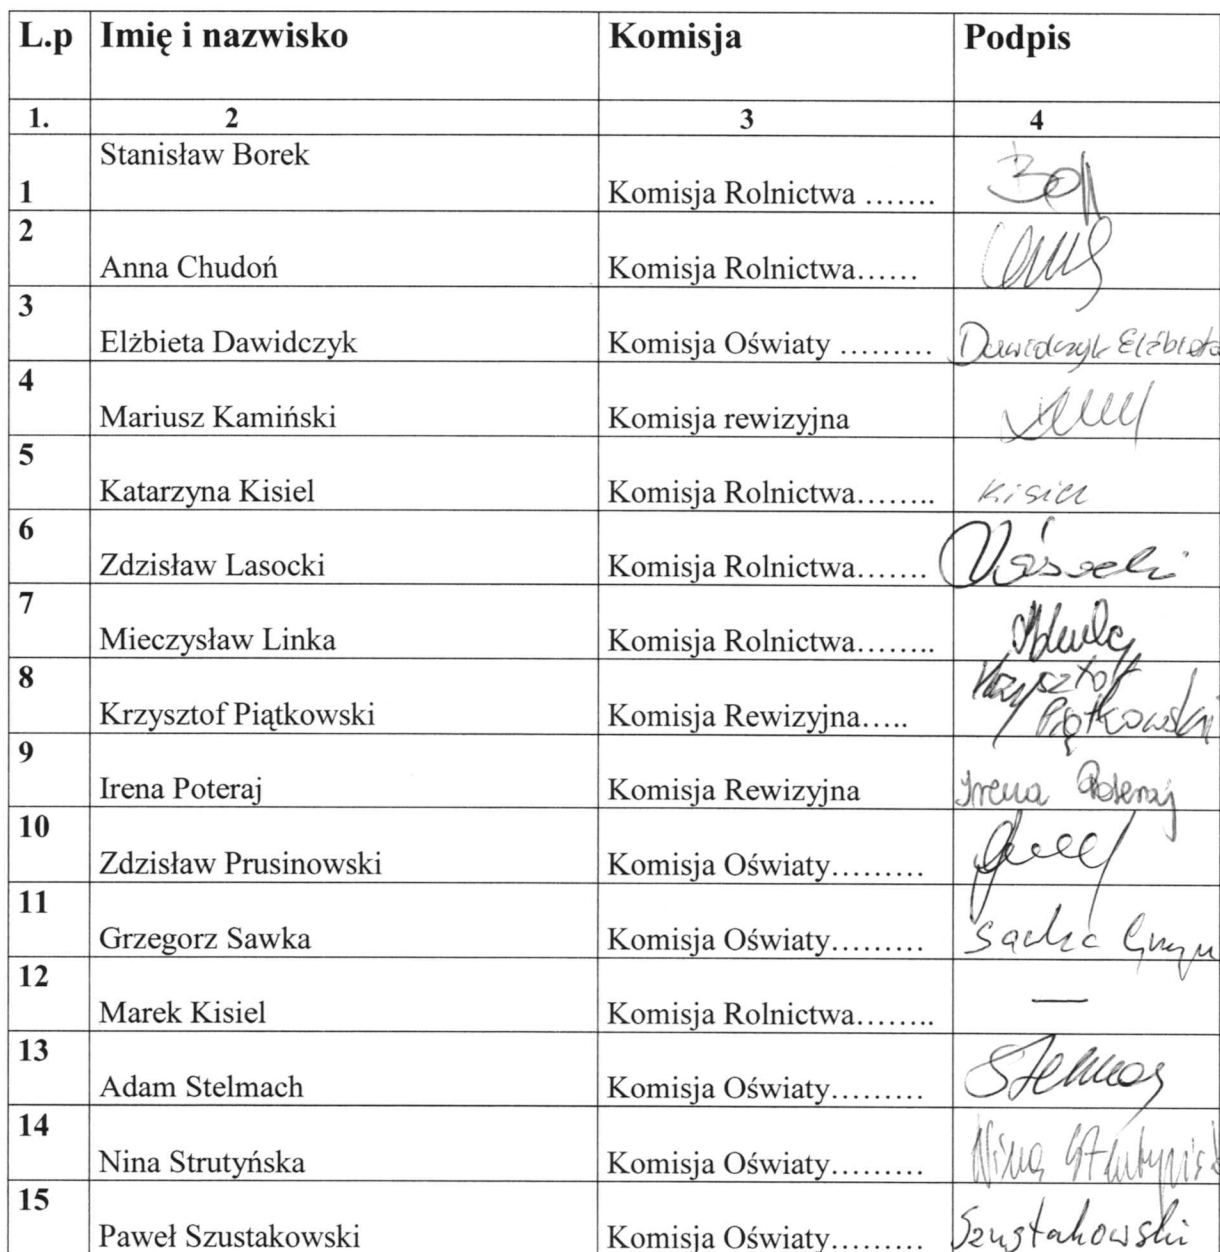 L.p Imię i nazwisko Komisja Podpis
1. 2 3 4
Stanisław Borek
1 Komisja Rolnictwa …….
2
Anna Chudoń Komisja Rolnictwa……
3
Elżbieta Dawidczyk Komisja Oświaty ……… Dawidczyk Elżbieta
4
Mariusz Kamiński Komisja rewizyjna
5
Katarzyna Kisiel Komisja Rolnictwa…….. Kisiel
6
Zdzisław Lasocki Komisja Rolnictwa……. Lasocki
7
Mieczysław Linka Komisja Rolnictwa……..
8 Krzysztof
Krzysztof Piątkowski Komisja Rewizyjna….. Piątkowski
9
Irena Poteraj Komisja Rewizyjna Irena Poteraj
10
Zdzisław Prusinowski Komisja Oświaty………
11
Grzegorz Sawka Komisja Oświaty……… Sawka
12
Marek Kisiel Komisja Rolnictwa…….. —
13
Adam Stelmach Komisja Oświaty……… Stelmach
14
Nina Strutyńska Komisja Oświaty……… Nina
15
Paweł Szustakowski Komisja Oświaty……… Szustakowski